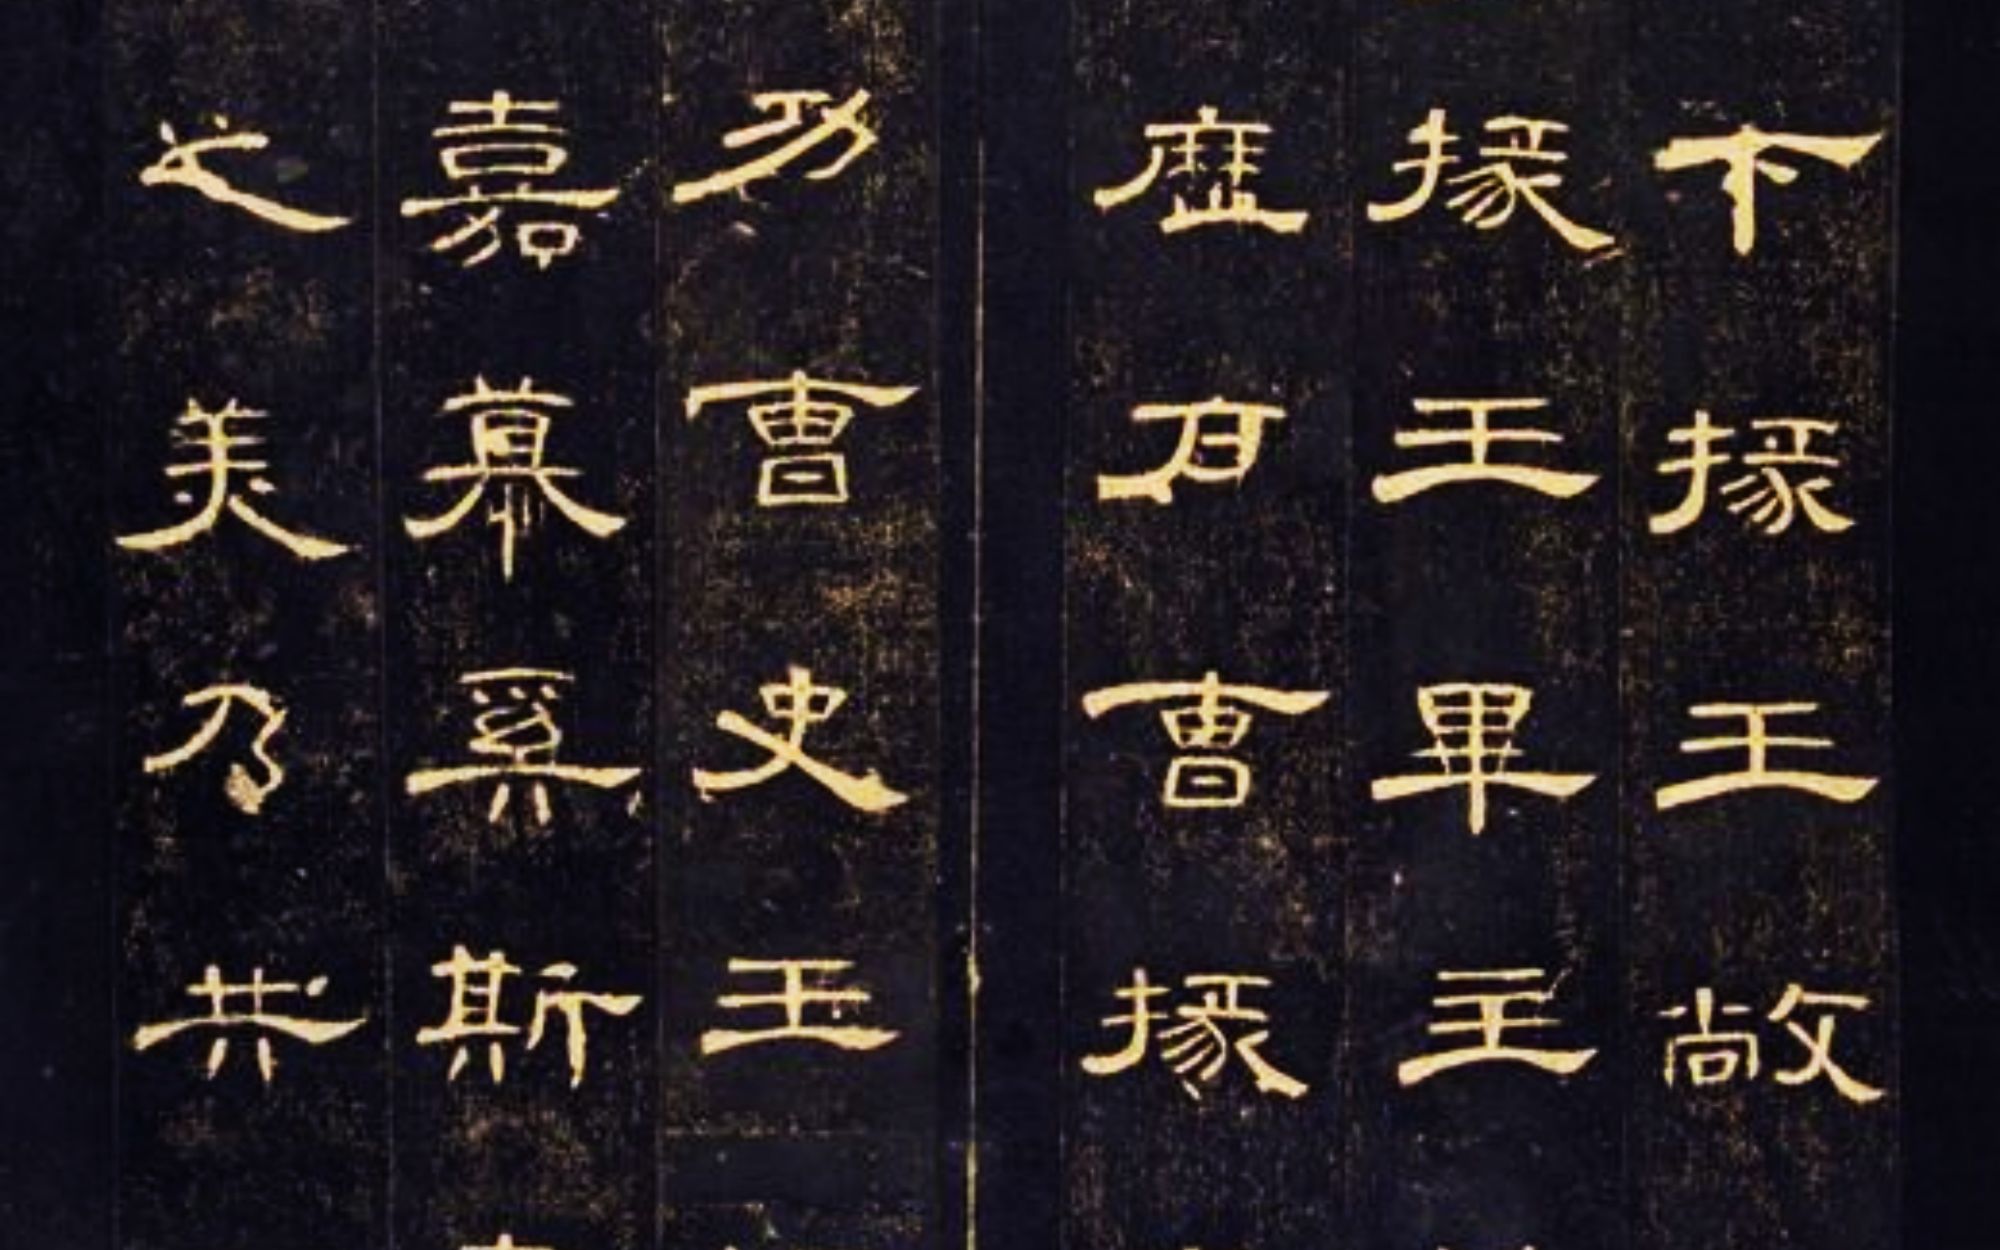 下掾王敞
掾王畢主
歷戶曹掾
功曹史王
嘉慕奚斯
之美乃共